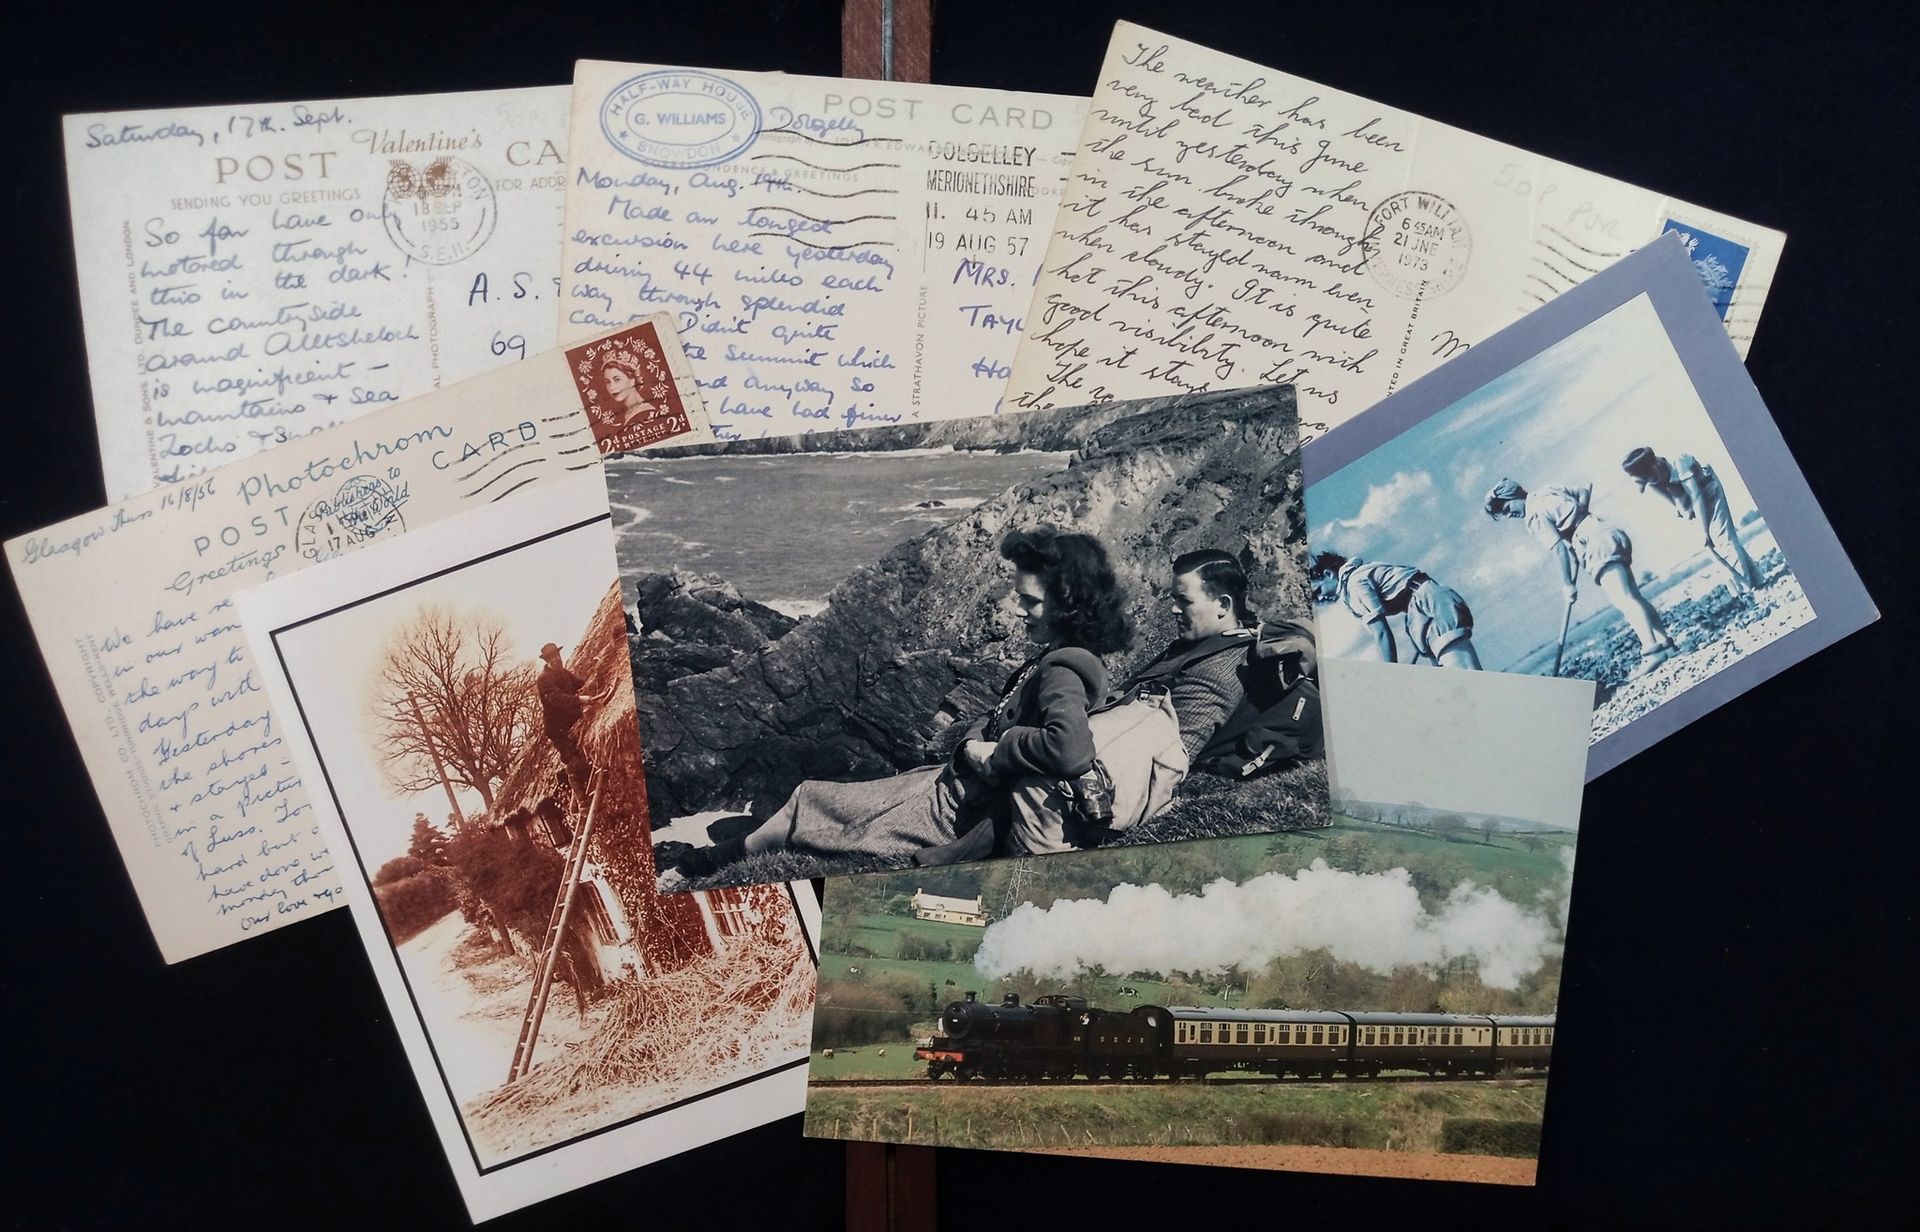 Saturday, 17th. Sept.
Valentine's
POST CA
SENDING YOU GREETINGS
FOR ADDR
18 SEP
1955
S.E.11.
So far have only
motored through
this in the dark!
The countryside
around
is magnificent –
mountains & sea
Lochs &
A. S.
69
VALENTINE & SONS, LTD. DUNDEE AND LONDON
AL PHOTOGRAPH
HALF-WAY HOUSE
G. WILLIAMS
SNOWDON
Dolgelley
POST CARD
NDENCE & GREETINGS
DOLGELLEY
MERIONETHSHIRE
11. 45 AM
19 AUG 57
Monday, Aug. 19th.
Made an longest
excursion here yesterday
driving 44 miles each
way through splendid
Didn't quite
the Summit which
anyway so
have had finer
MRS.
TAYL
Ha
A STRATHAVON PICTURE
The weather has been
very bad this June
until yesterday when
the sun broke through
in the afternoon and
it has stayed warm even
when cloudy. It is quite
hot this afternoon with
good visibility. Let us
hope it stays
The
the
50p
FORT WILLIAM
6 45AM
21 JNE
1973
INVERNESS-SHIRE
NTED IN GREAT BRITAIN
M
2d POSTAGE 2d
REVENUE
Glasgow Thurs 16/8/56
Photochrom
POST CARD
Publishers to
the World
GLAS
17 AUG
Greetings
We have
in our
the way to
days with
Yesterday
the shores
& stayed –
in a pictur
of Luss.
hard but
have done
Our love
PHOTOCHROM CO. LTD.
GRAPHIC STUDIOS·TUNBRIDGE WELLS·KENT
COPYRIGHT
88 S D J R